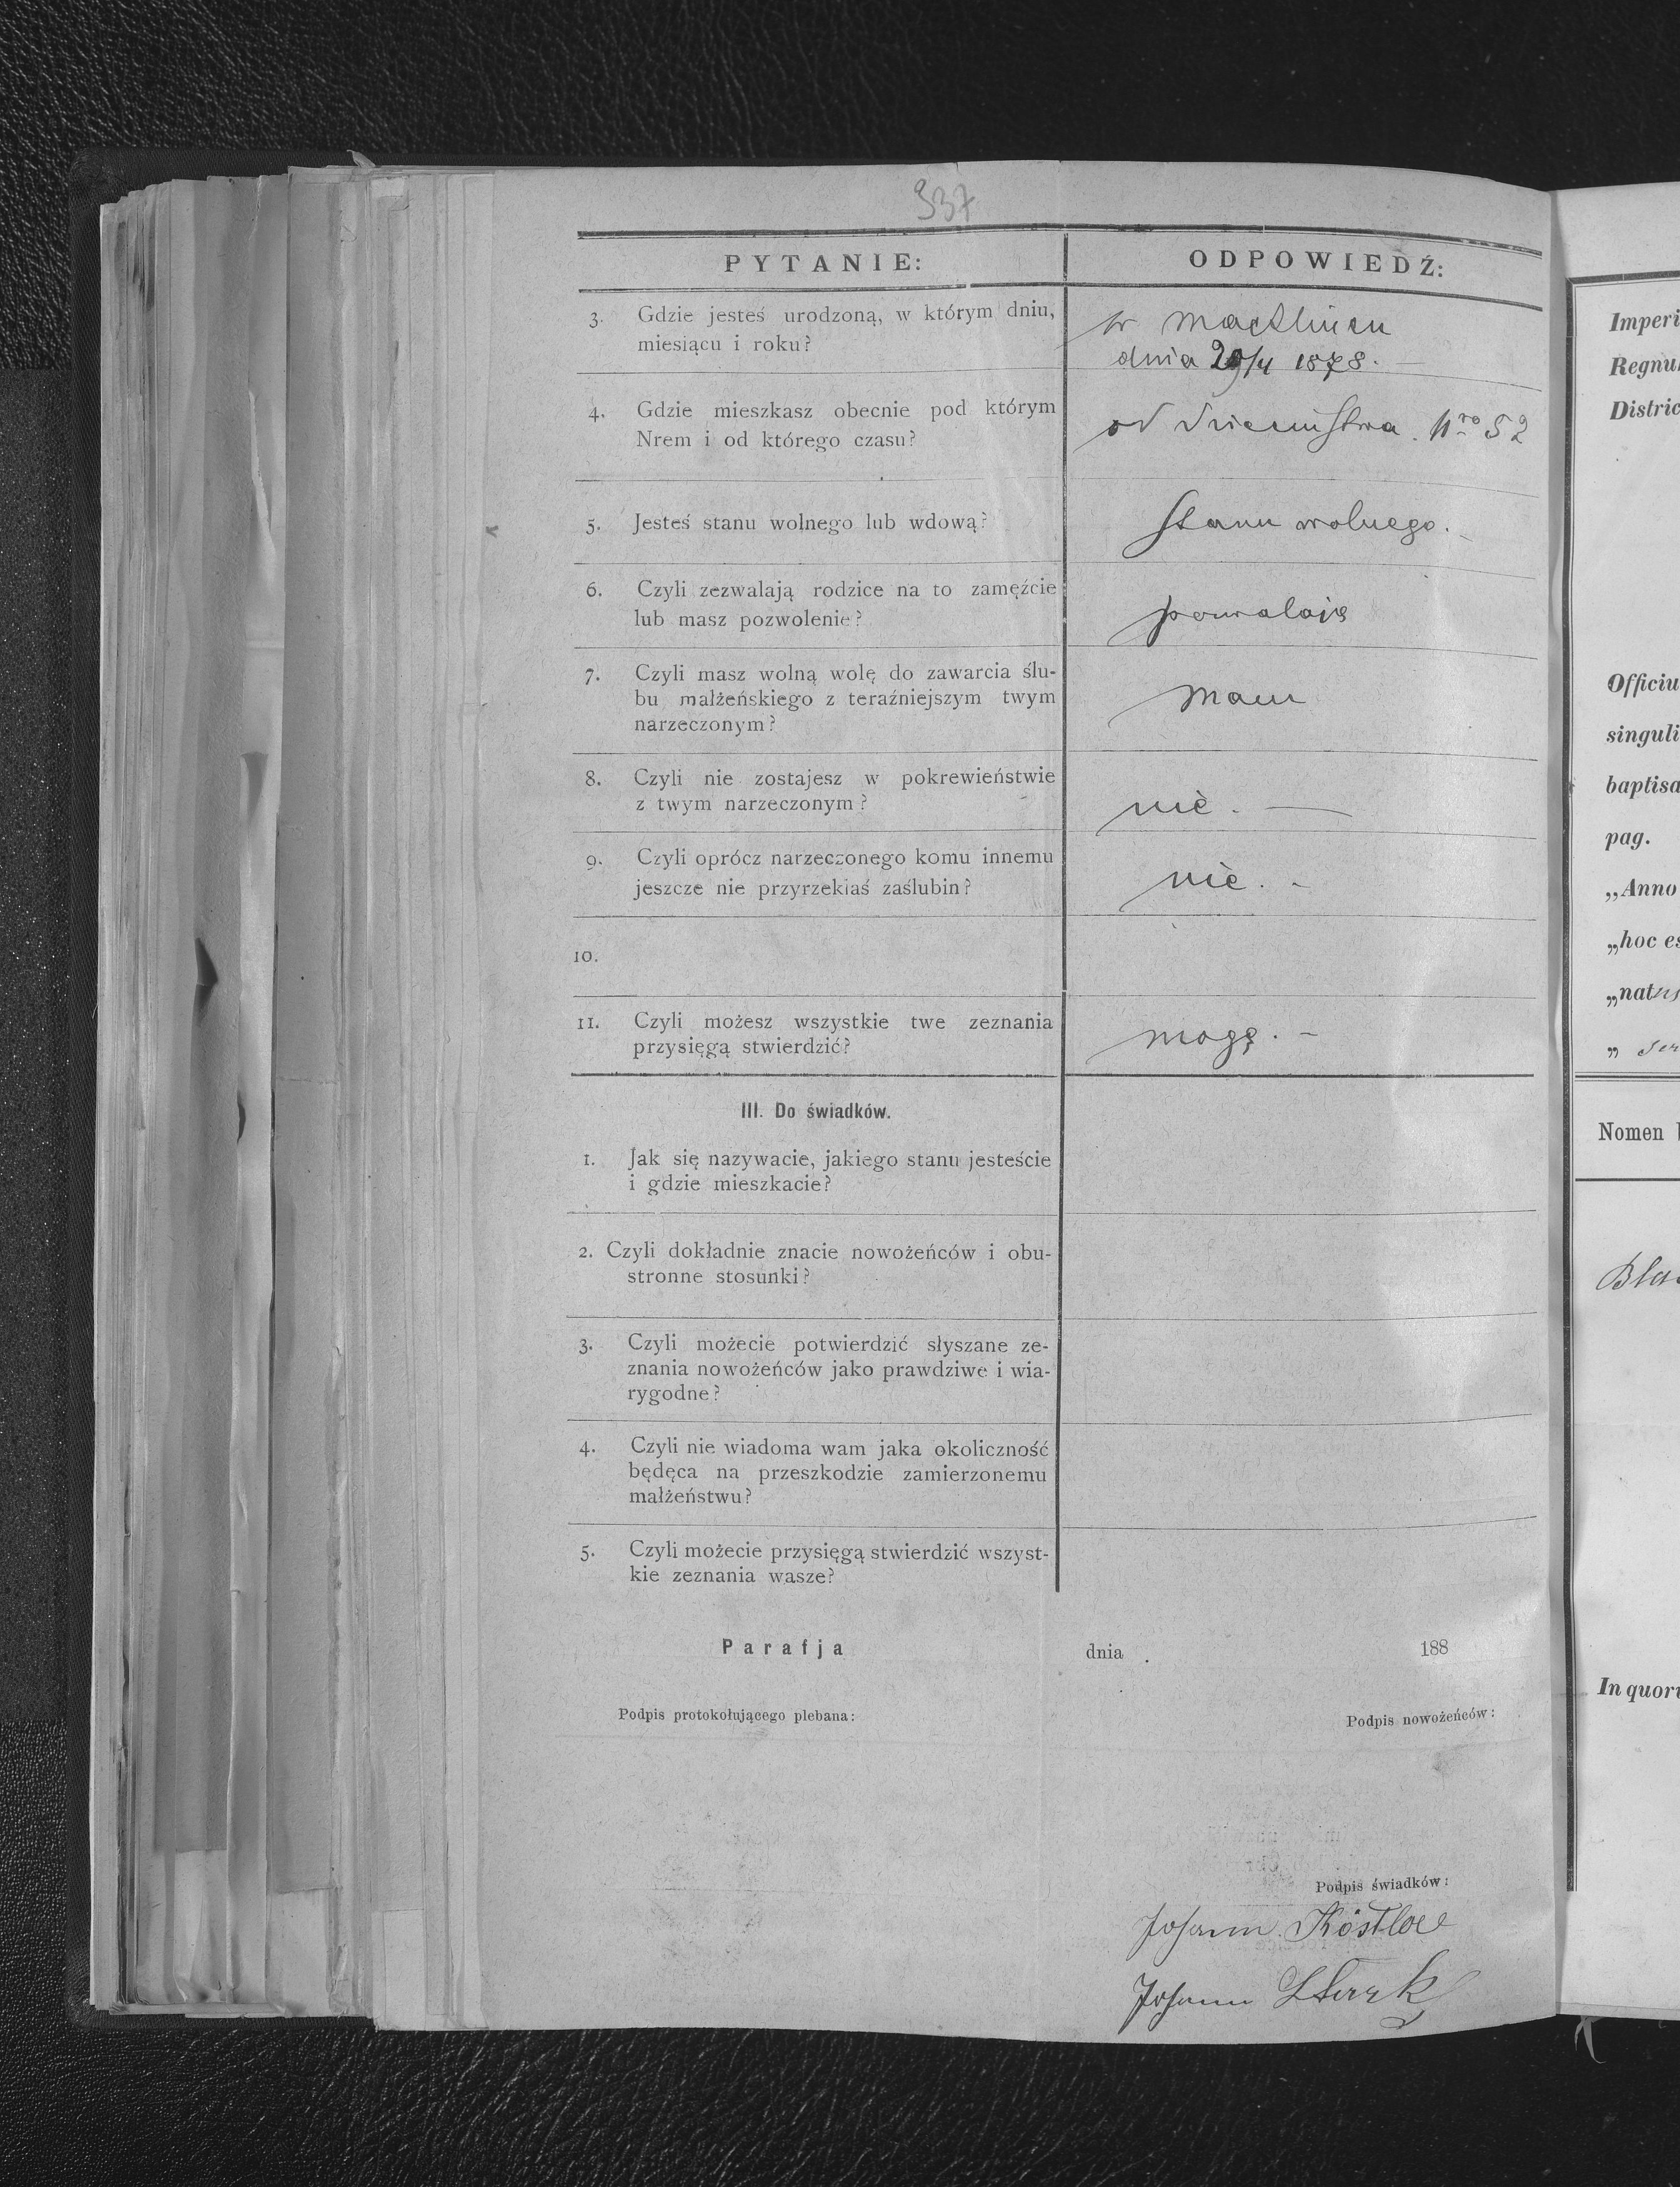 337
PYTANIE:
ODPOWIEDŹ:
3. Gdzie jesteś urodzoną, w którym dniu,
miesiącu i roku?
w
dnia 29/4 1878. —
4. Gdzie mieszkasz obecnie pod którym
Nrem i od którego czasu?
od Nro 52
5. Jesteś stanu wolnego lub wdową?
stanu wolnego. –
6. Czyli zezwalają rodzice na to zamęźcie
lub masz pozwolenie?
pozwalają
7. Czyli masz wolną wolę do zawarcia ślu-
bu małżeńskiego z teraźniejszym twym
narzeczonym?
mam
8. Czyli nie zostajesz w pokrewieństwie
z twym narzeczonym?
nie. —
9. Czyli oprócz narzeczonego komu innemu
jeszcze nie przyrzekłaś zaślubin?
nie. –
10.
11. Czyli możesz wszystkie twe zeznania
przysięgą stwierdzić?
mogę. –
III. Do świadków.
1. Jak się nazywacie, jakiego stanu jesteście
i gdzie mieszkacie?
2. Czyli dokładnie znacie nowożeńców i obu-
stronne stosunki?
3. Czyli możecie potwierdzić słyszane ze-
znania nowożeńców jako prawdziwe i wia-
rygodne?
4. Czyli nie wiadoma wam jaka okoliczność
będęca na przeszkodzie zamierzonemu
małżeństwu?
5. Czyli możecie przysięgą stwierdzić wszyst-
kie zeznania wasze?
Parafja dnia 188
Podpis protokołującego plebana:
Podpis nowożeńców:
Podpis świadków:
Johann
Johann Stark
Imperi
Regnu
Distric
Officiu
singuli
baptisa
pag.
„Anno
„hoc es
„natus
„
Nomen
Bla
In quoru